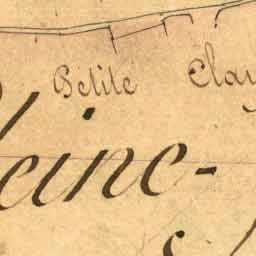 Petite Clay
eine-